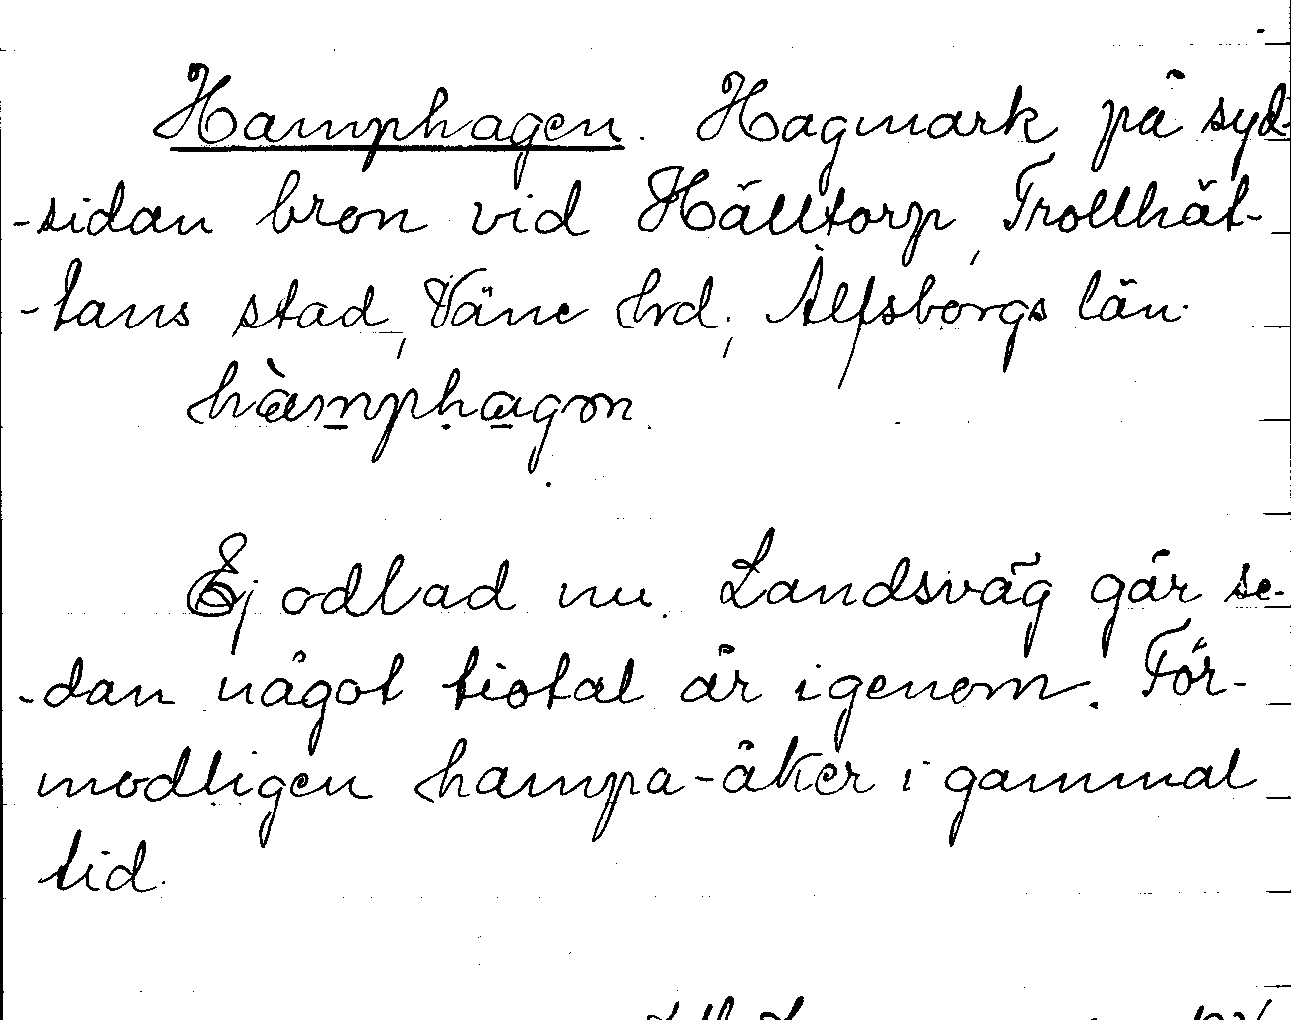 Hamphagen. Hagmark på syd-
-sidan bron vid Hälltorp, Trollhät-
-tans stad, Väne hrd; Älfsborgs län.
hàmphagən.
Ej odlad nu. Landsväg går se-
-dan något tiotal år igenom. För-
modligen hampa-åker i gammal
tid.